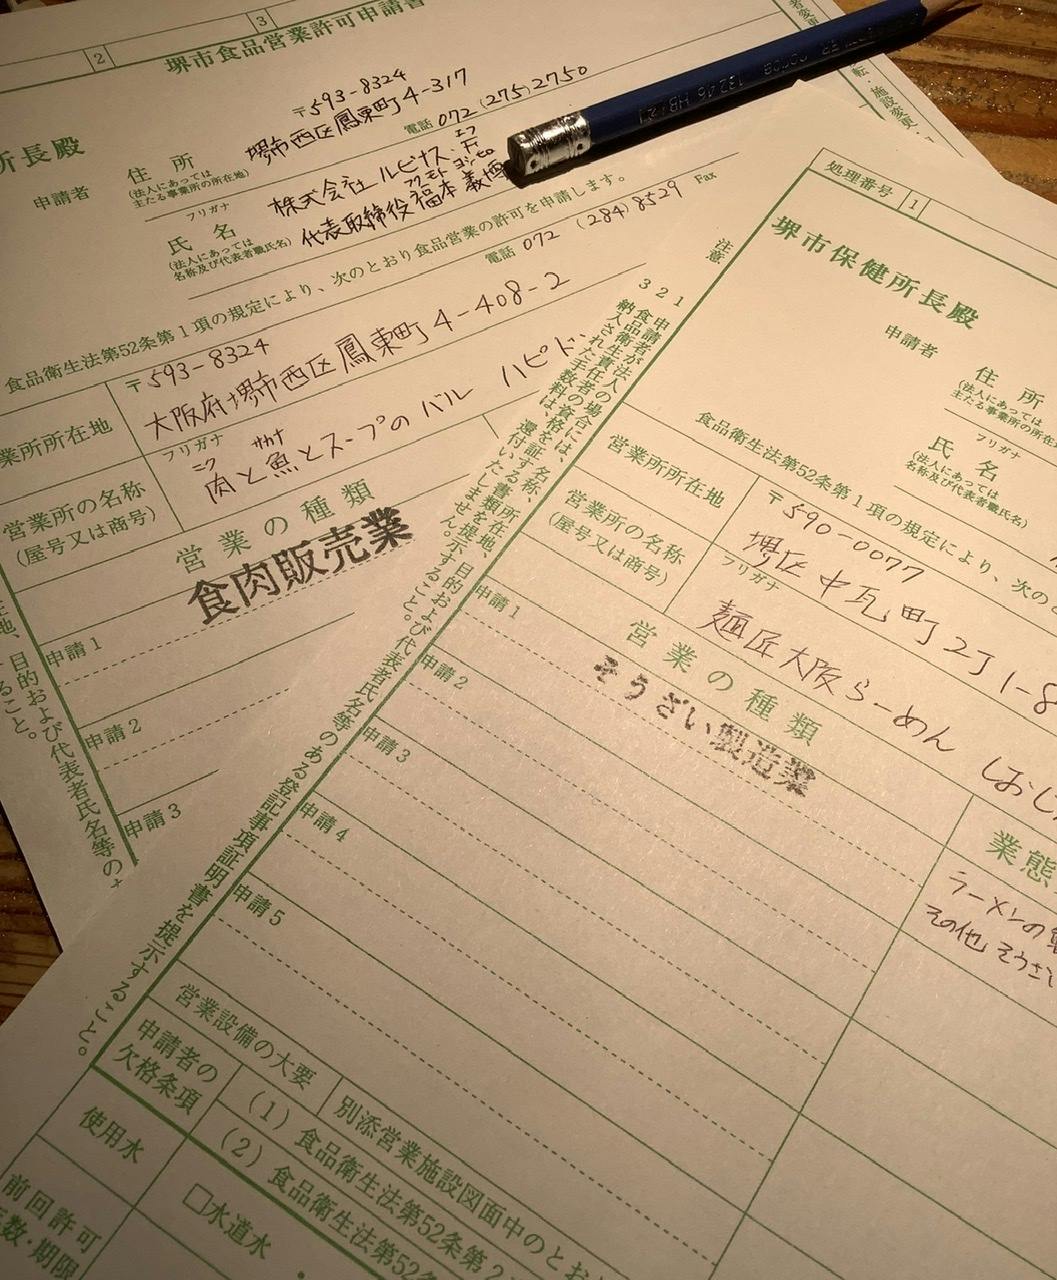 2
3
堺市食品営業許可申請書
所長殿
〒593-8324
住所
堺市西区鳳東町4-317
申請者
(法人にあっては
主たる事業所の所在地)
電話 072 (275) 2750
フリガナ
株式会社ルピナス
氏名
フクモト ヨシヒロ
代表取締役 福本義博
(法人にあっては
名称及び代表者職氏名)
食品衛生法第52条第1項の規定により、次のとおり食品営業の許可を申請します。
電話 072 (284) 8529 Fax
業所所在地
〒593-8324
大阪府堺市西区鳳東町4-408-2
営業所の名称
(屋号又は商号)
フリガナ
ニク サカナ
肉と魚とスープのバル ハピド
営業の種類
食肉販売業
申請1
申請2
申請3
在地、目的および代表者氏名等の
ること。
者変更
転・施設変更・
処理番号
1
堺市保健所長殿
申請者
住所
(法人にあっては
主たる事業所の所在
フリガナ
氏名
(法人にあっては
名称及び代表者職氏名)
食品衛生法第52条第1項の規定により、次のと
注意
1 申請者が法人の場合には、名称、所在地、目的および代表者氏名等のある登記事項証明書を提示すること。
2 食品衛生責任者の資格を証する書類を提示すること。
3 納入された手数料は、還付いたしません。
営業所所在地
〒590-0077
堺区中瓦町2丁1-8
営業所の名称
(屋号又は商号)
フリガナ
麺匠大阪らーめん
営業の種類
そうざい製造業
業態
ラーメンの
その他 そうざい
申請1
申請2
申請3
申請4
申請5
営業設備の大要
別添営業施設図面中のとお
申請者の
欠格条項
(1) 食品衛生法第52条第2
(2) 食品衛生法第52
使用水
□水道水
前回許可
年数・期限